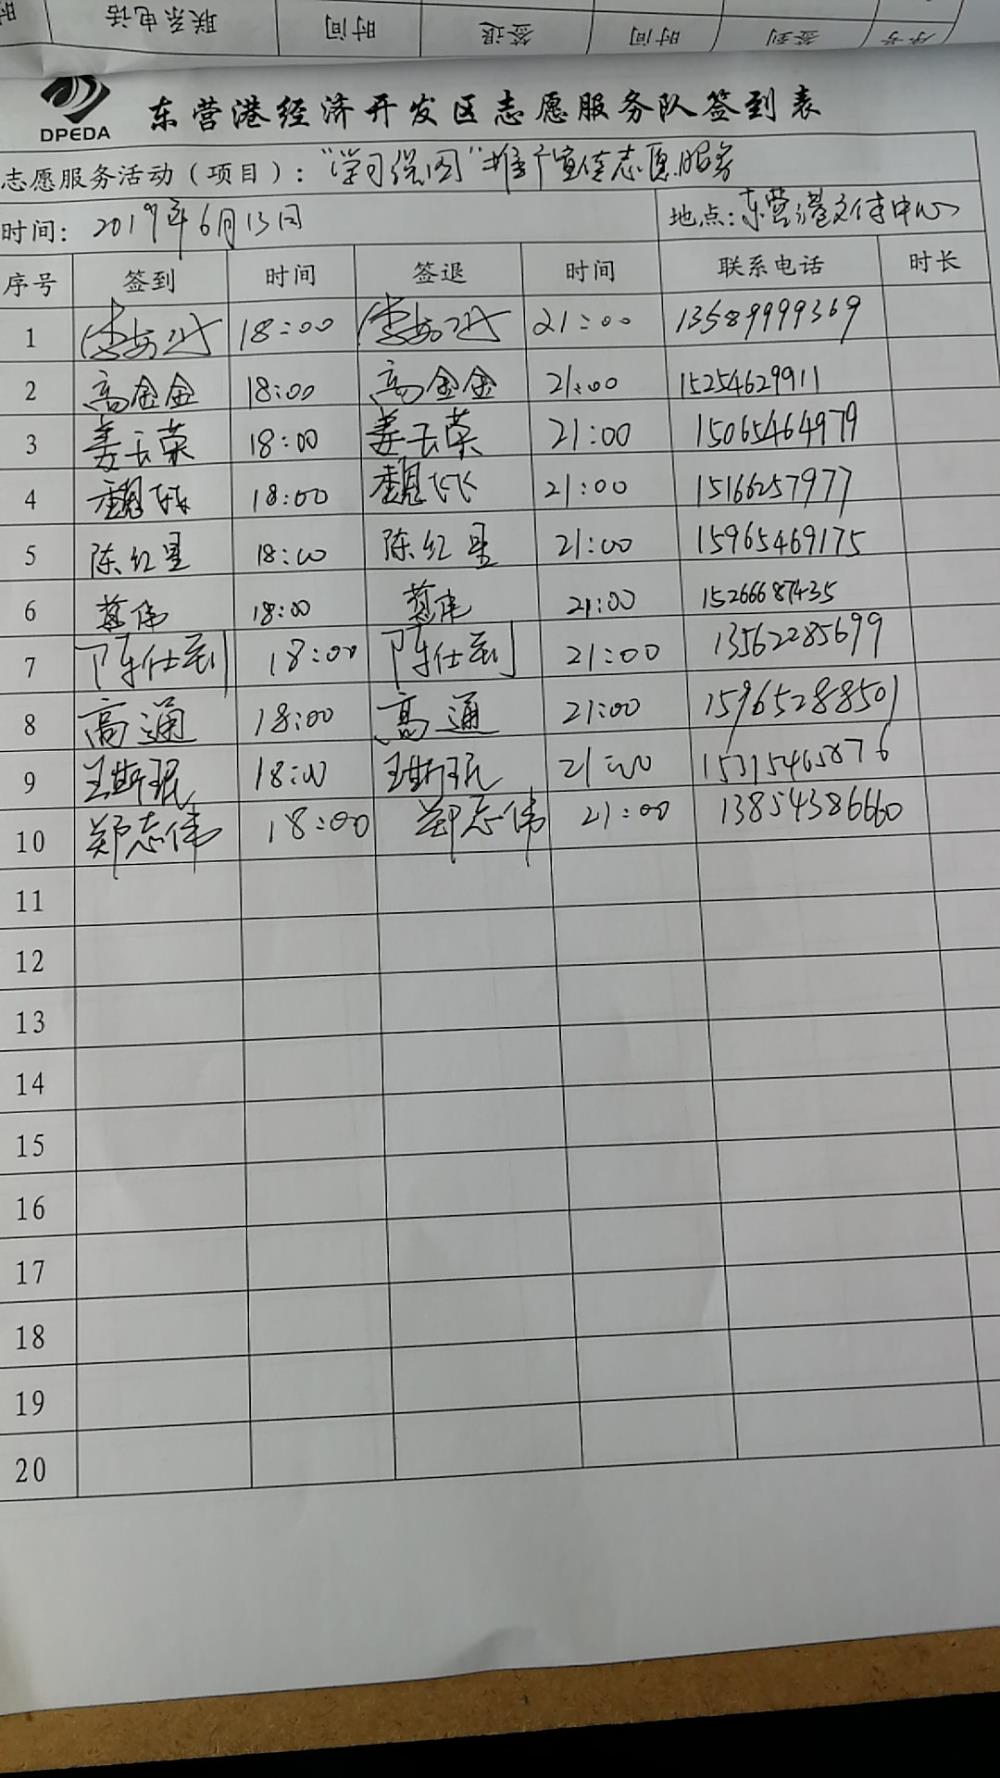 联系电话 时间 签退 时间 签到 序号
DPEDA
东营港经济开发区志愿服务队签到表
志愿服务活动（项目）："学习强国"推广宣传志愿服务
时间：2019年6月13日 地点：东营港文体中心
序号 签到 时间 签退 时间 联系电话 时长
1 18:00 21:00 13589999369
2 高金金 18:00 高金金 21:00 15254629911
3 姜玉荣 18:00 姜玉荣 21:00 15065464979
4 18:00 21:00 15166257977
5 陈红星 18:00 陈红星 21:00 15965469175
6 18:00 21:00 15266687435
7 陈仕刚 18:00 陈仕刚 21:00 13562285699
8 高通 18:00 高通 21:00 15965288501
9 王斯琨 18:00 王斯琨 21:00 15315465876
10 郑志伟 18:00 郑志伟 21:00 13854386660
11
12
13
14
15
16
17
18
19
20